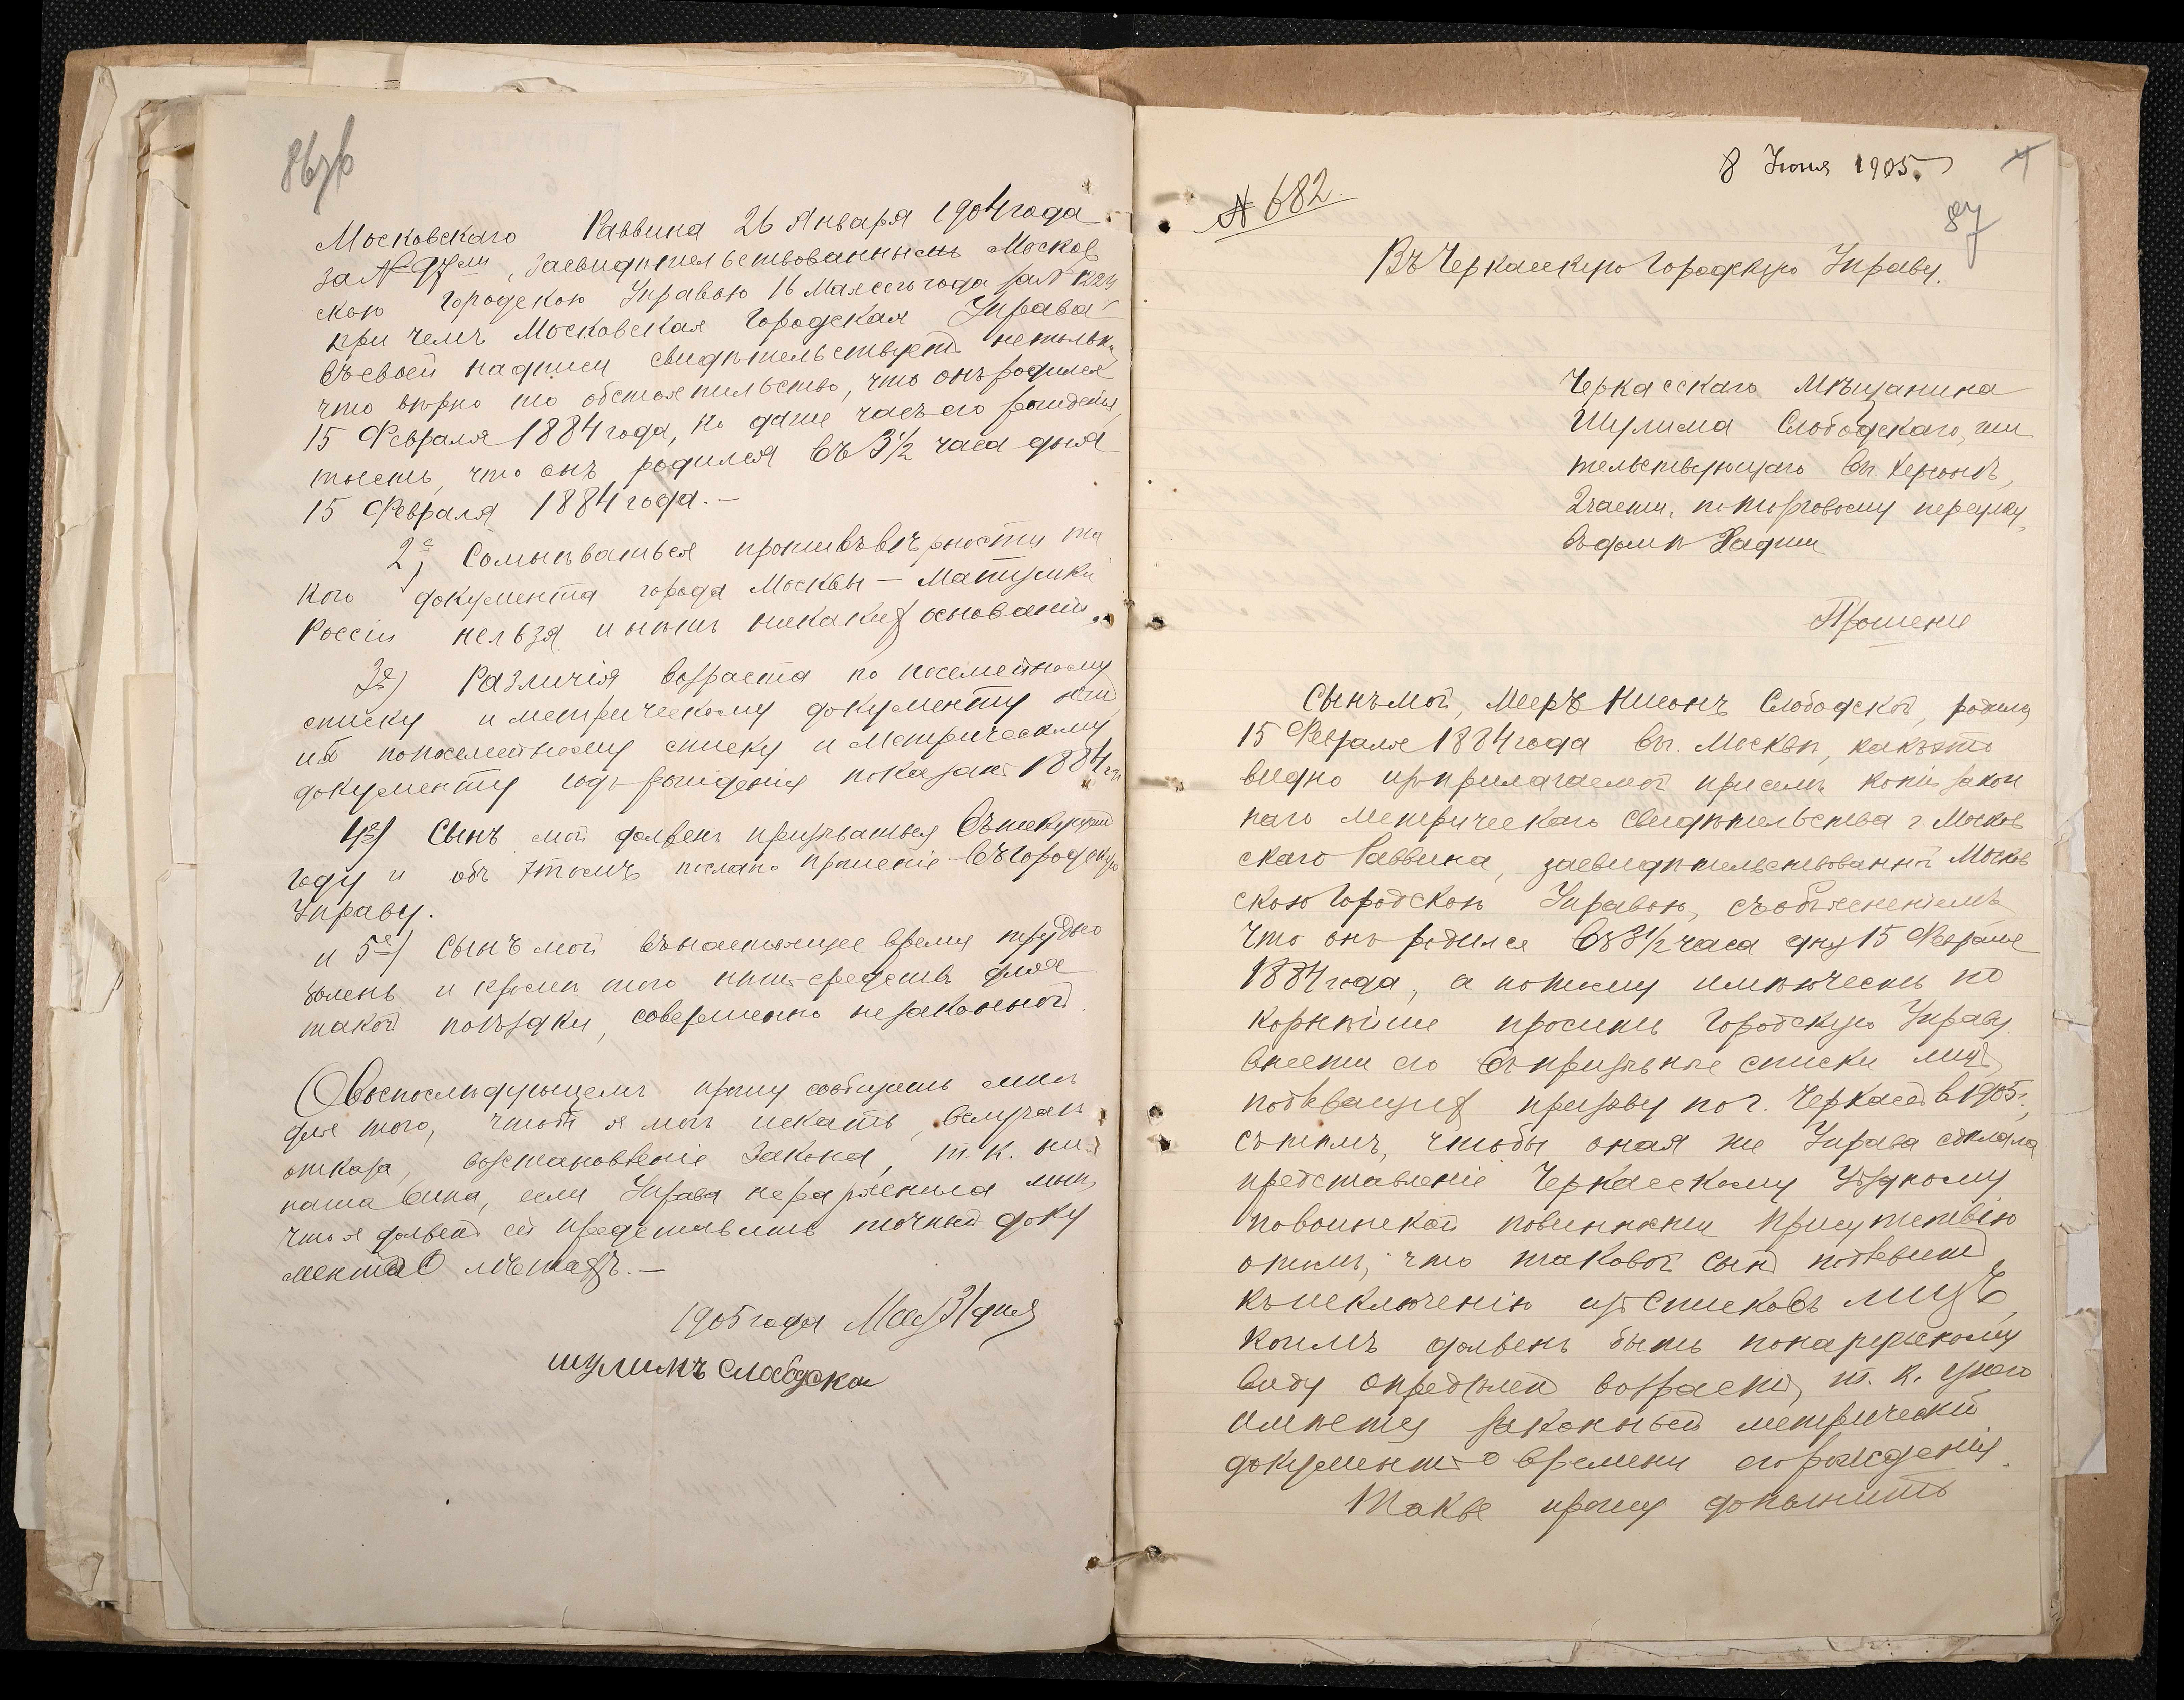 86об
Московскаго Раввина 26 Января 1904 года
за № 97ом, засвидѣтельствованнымъ Москов
скою Городскою Управою 16 Мая сего года за №
при чемъ Московская Городская Управа
въ своей надписи свидѣтельствуетъ не только
что вѣрно то обстоятельство, что онъ родился
15 Февраля 1884 года, но даже часъ его рожденія,
тоесть, что онъ родился въ 3½ часа дня
15 Февраля 1884 года.—
2е, Сомнѣваться противъ вѣрности та
кого документа города Москвы — Матушки
Россіи нельзя и нѣтъ никакихъ основаній.
3е) Различія возраста по посемейному
списку и метрическому документу нѣт
ибо по посемейному списку и Метрическому
документу годъ рожденія показанъ 1884 г.
4е) Сынъ мой долженъ призываться въ текущемъ
году и объ этомъ послано прошеніе въ Городскую
Управу.
и 5е) Сынъ мой въ настоящее время трудно
боленъ и кромѣ того нѣтъ средствъ для
такой поѣздки, совершенно незаконной.
О воспослѣдующемъ прошу сообщить мнѣ
для того, чтобы я могъ искать, въ случаѣ
отказа, возстановленіе Закона, т.к. не
наша вина, если Управа не разъяснила мнѣ,
что я долженъ ей представить точный доку
ментъ О лѣтахъ.—
1905 года Мая 31 дня
шулимъ слабодской
8 Июня 1905.
87
№ 682.
Въ Черкасскую Городскую Управу.
Черкасскаго Мѣщанина
Шулима Слободскаго, жи
тельствующаго въ г. Херсонѣ,
2 части, по Торговому переулку,
въ домѣ
Прошеніе
Сынъ мой, Мееръ Нисонъ Слободской, родился
15 Февраля 1884 года въ г. Москвѣ, какъ это
видно изъ прилагаемой при семъ копіи закон
наго метрическаго свидѣтельства г. Москов
скаго Раввина, засвидѣтельствованной Москов
скою Городскою Управою, съ объясненіемъ
что онъ родился въ 3½ часа дня 15 Февраля
1884 года, а потому имѣю честь по
корнѣйше просить Городскую Управу
внести его въ призывные списки лицъ,
подлежащихъ призыву по г. Черкасы в 1905 г.,
съ тѣмъ, чтобы оная же Управа сдѣлала
представленіе Черкасскому Уѣздному
по воинской повинности Присутствію
о томъ, что таковой сынъ подлежитъ
къ исключенію изъ Списковъ лицъ,
коимъ долженъ быть по наружному
виду опредѣленъ возрастъ, т. к. у него
имѣется законный метрическій
документъ о времени его рожденія.
Также прошу дополнить